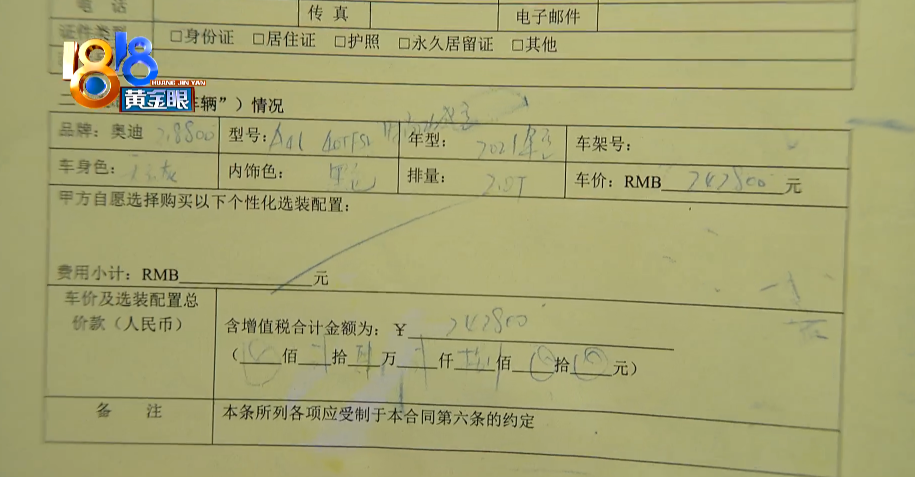 电 话 传 真 电子邮件
证件类型 □身份证 □居住证 □护照 □永久居留证 □其他
1818
HUANG JIN YAN
黄金眼
二 车辆”）情况
品牌：奥迪 型号：A4L 40TFSI 年型：2021 车架号：
车身色： 内饰色：黑色 排量：2.0T 车价：RMB 242800 元
甲方自愿选择购买以下个性化选装配置：
费用小计：RMB 元
车价及选装配置总价款（人民币）
含增值税合计金额为：￥ 242800
（ 佰 拾 万 仟 佰 拾 元）
备 注 本条所列各项应受制于本合同第六条的约定